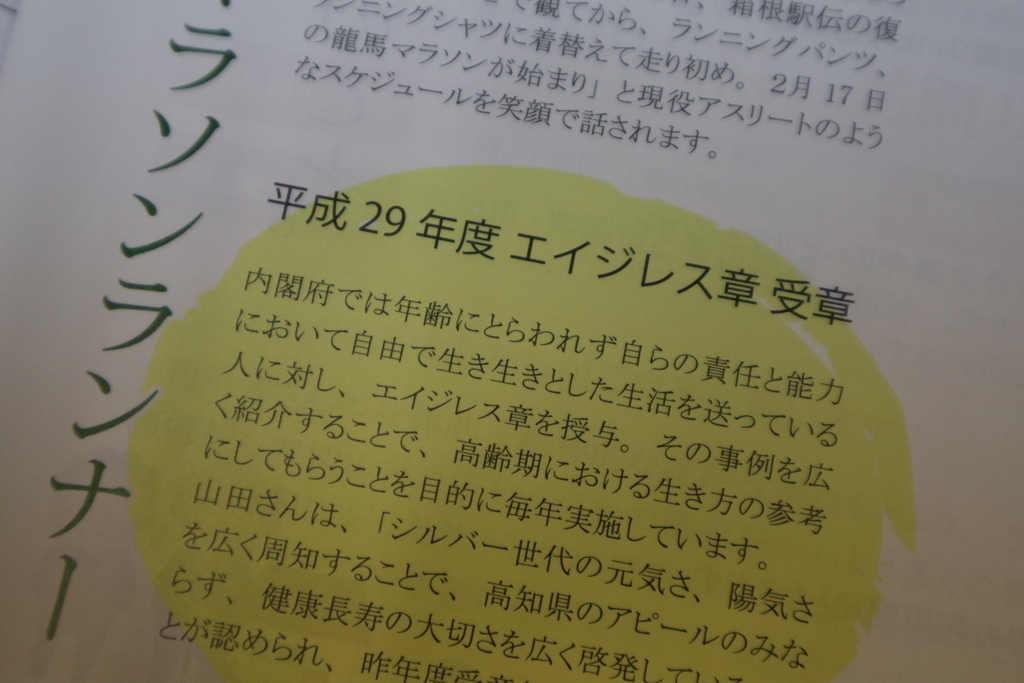 、箱根駅伝の復
で観てから、ランニングパンツ、
ランニングシャツに着替えて走り初め。2月 17 日
の龍馬マラソンが始まり」と現役アスリートのよう
なスケジュールを笑顔で話されます。
ラソンランナー
平成 29 年度 エイジレス章 受章
内閣府では年齢にとらわれず自らの責任と能力
において自由で生き生きとした生活を送っている
人に対し、エイジレス章を授与。その事例を広
く紹介することで、高齢期における生き方の参考
にしてもらうことを目的に毎年実施しています。
山田さんは、「シルバー世代の元気さ、陽気さ
を広く周知することで、高知県のアピールのみな
らず、健康長寿の大切さを広く啓発している
とが認められ、昨年度受章